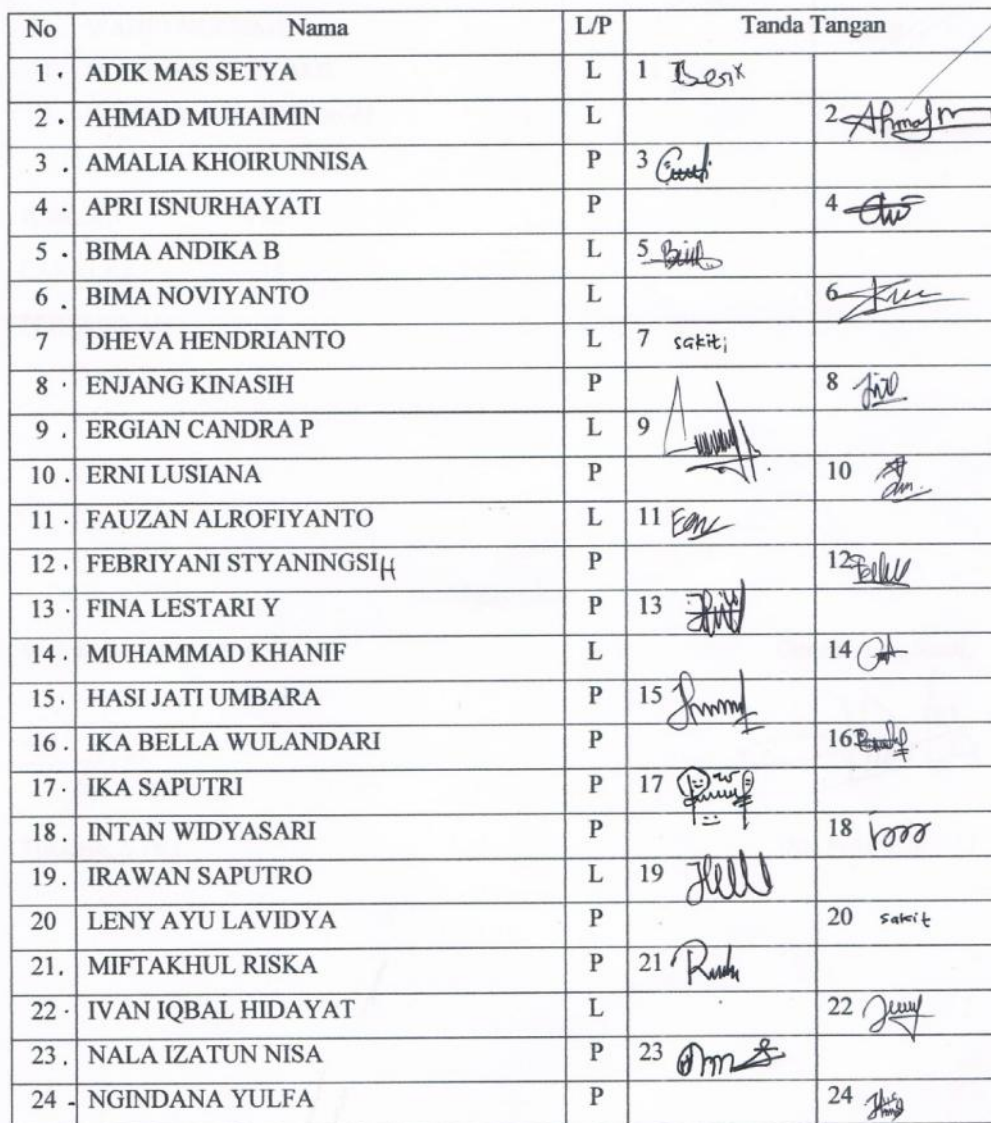 No Nama L/P Tanda Tangan
1 . ADIK MAS SETYA L 1
2 . AHMAD MUHAIMIN L 2 Ahmad
3 . AMALIA KHOIRUNNISA P 3
4 . APRI ISNURHAYATI P 4
5 . BIMA ANDIKA B L 5
6 . BIMA NOVIYANTO L 6
7 DHEVA HENDRIANTO L 7 sakit
8 . ENJANG KINASIH P 8
9 . ERGIAN CANDRA P L 9
10 . ERNI LUSIANA P 10
11 . FAUZAN ALROFIYANTO L 11
12 . FEBRIYANI STYANINGSIH P 12
13 . FINA LESTARI Y P 13
14 . MUHAMMAD KHANIF L 14
15 . HASI JATI UMBARA P 15
16 . IKA BELLA WULANDARI P 16
17 . IKA SAPUTRI P 17
18 . INTAN WIDYASARI P 18
19 . IRAWAN SAPUTRO L 19
20 LENY AYU LAVIDYA P 20 sakit
21 . MIFTAKHUL RISKA P 21
22 . IVAN IQBAL HIDAYAT L 22
23 . NALA IZATUN NISA P 23
24 - NGINDANA YULFA P 24